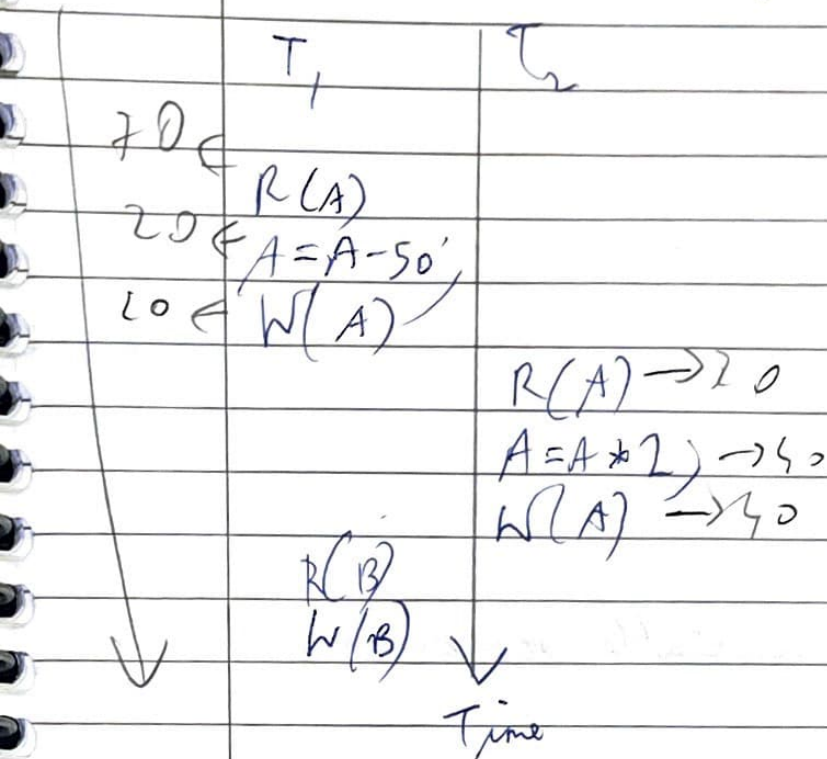 T1 T2
70 ←
R(A)
20 ← A=A-50
20 ← W(A)
R(A) → 20
A=A*2) → 40
W(A) → 40
R(B)
W(B)
Time